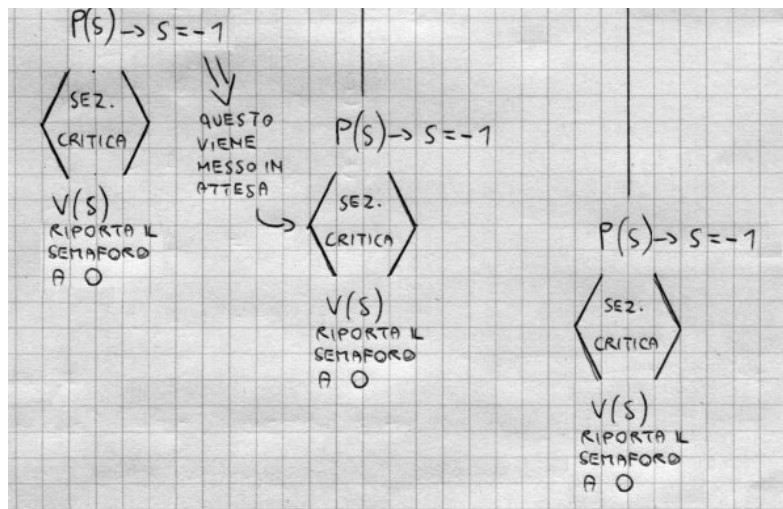 P(S) → S = -1
SEZ.
CRITICA
V(S)
RIPORTA IL
SEMAFORO
A O
QUESTO
VIENE
MESSO IN
ATTESA
P(S) → S = -1
SEZ.
CRITICA
V(S)
RIPORTA IL
SEMAFORO
A O
P(S) → S = -1
SEZ.
CRITICA
V(S)
RIPORTA IL
SEMAFORO
A O